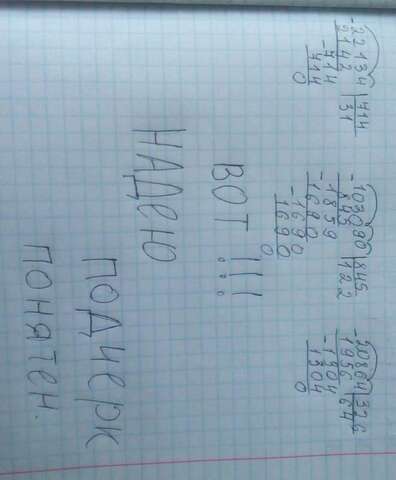 -22134 | 714
2142 | 31
-714
714
0
-103090 | 845
845 | 122
-1859
1690
-1690
1690
0
-20864 | 326
1956 | 64
-1304
1304
0
ВОТ !!!
НАДЕЮ
ПОДЧЕРК
ПОНЯТЕН.